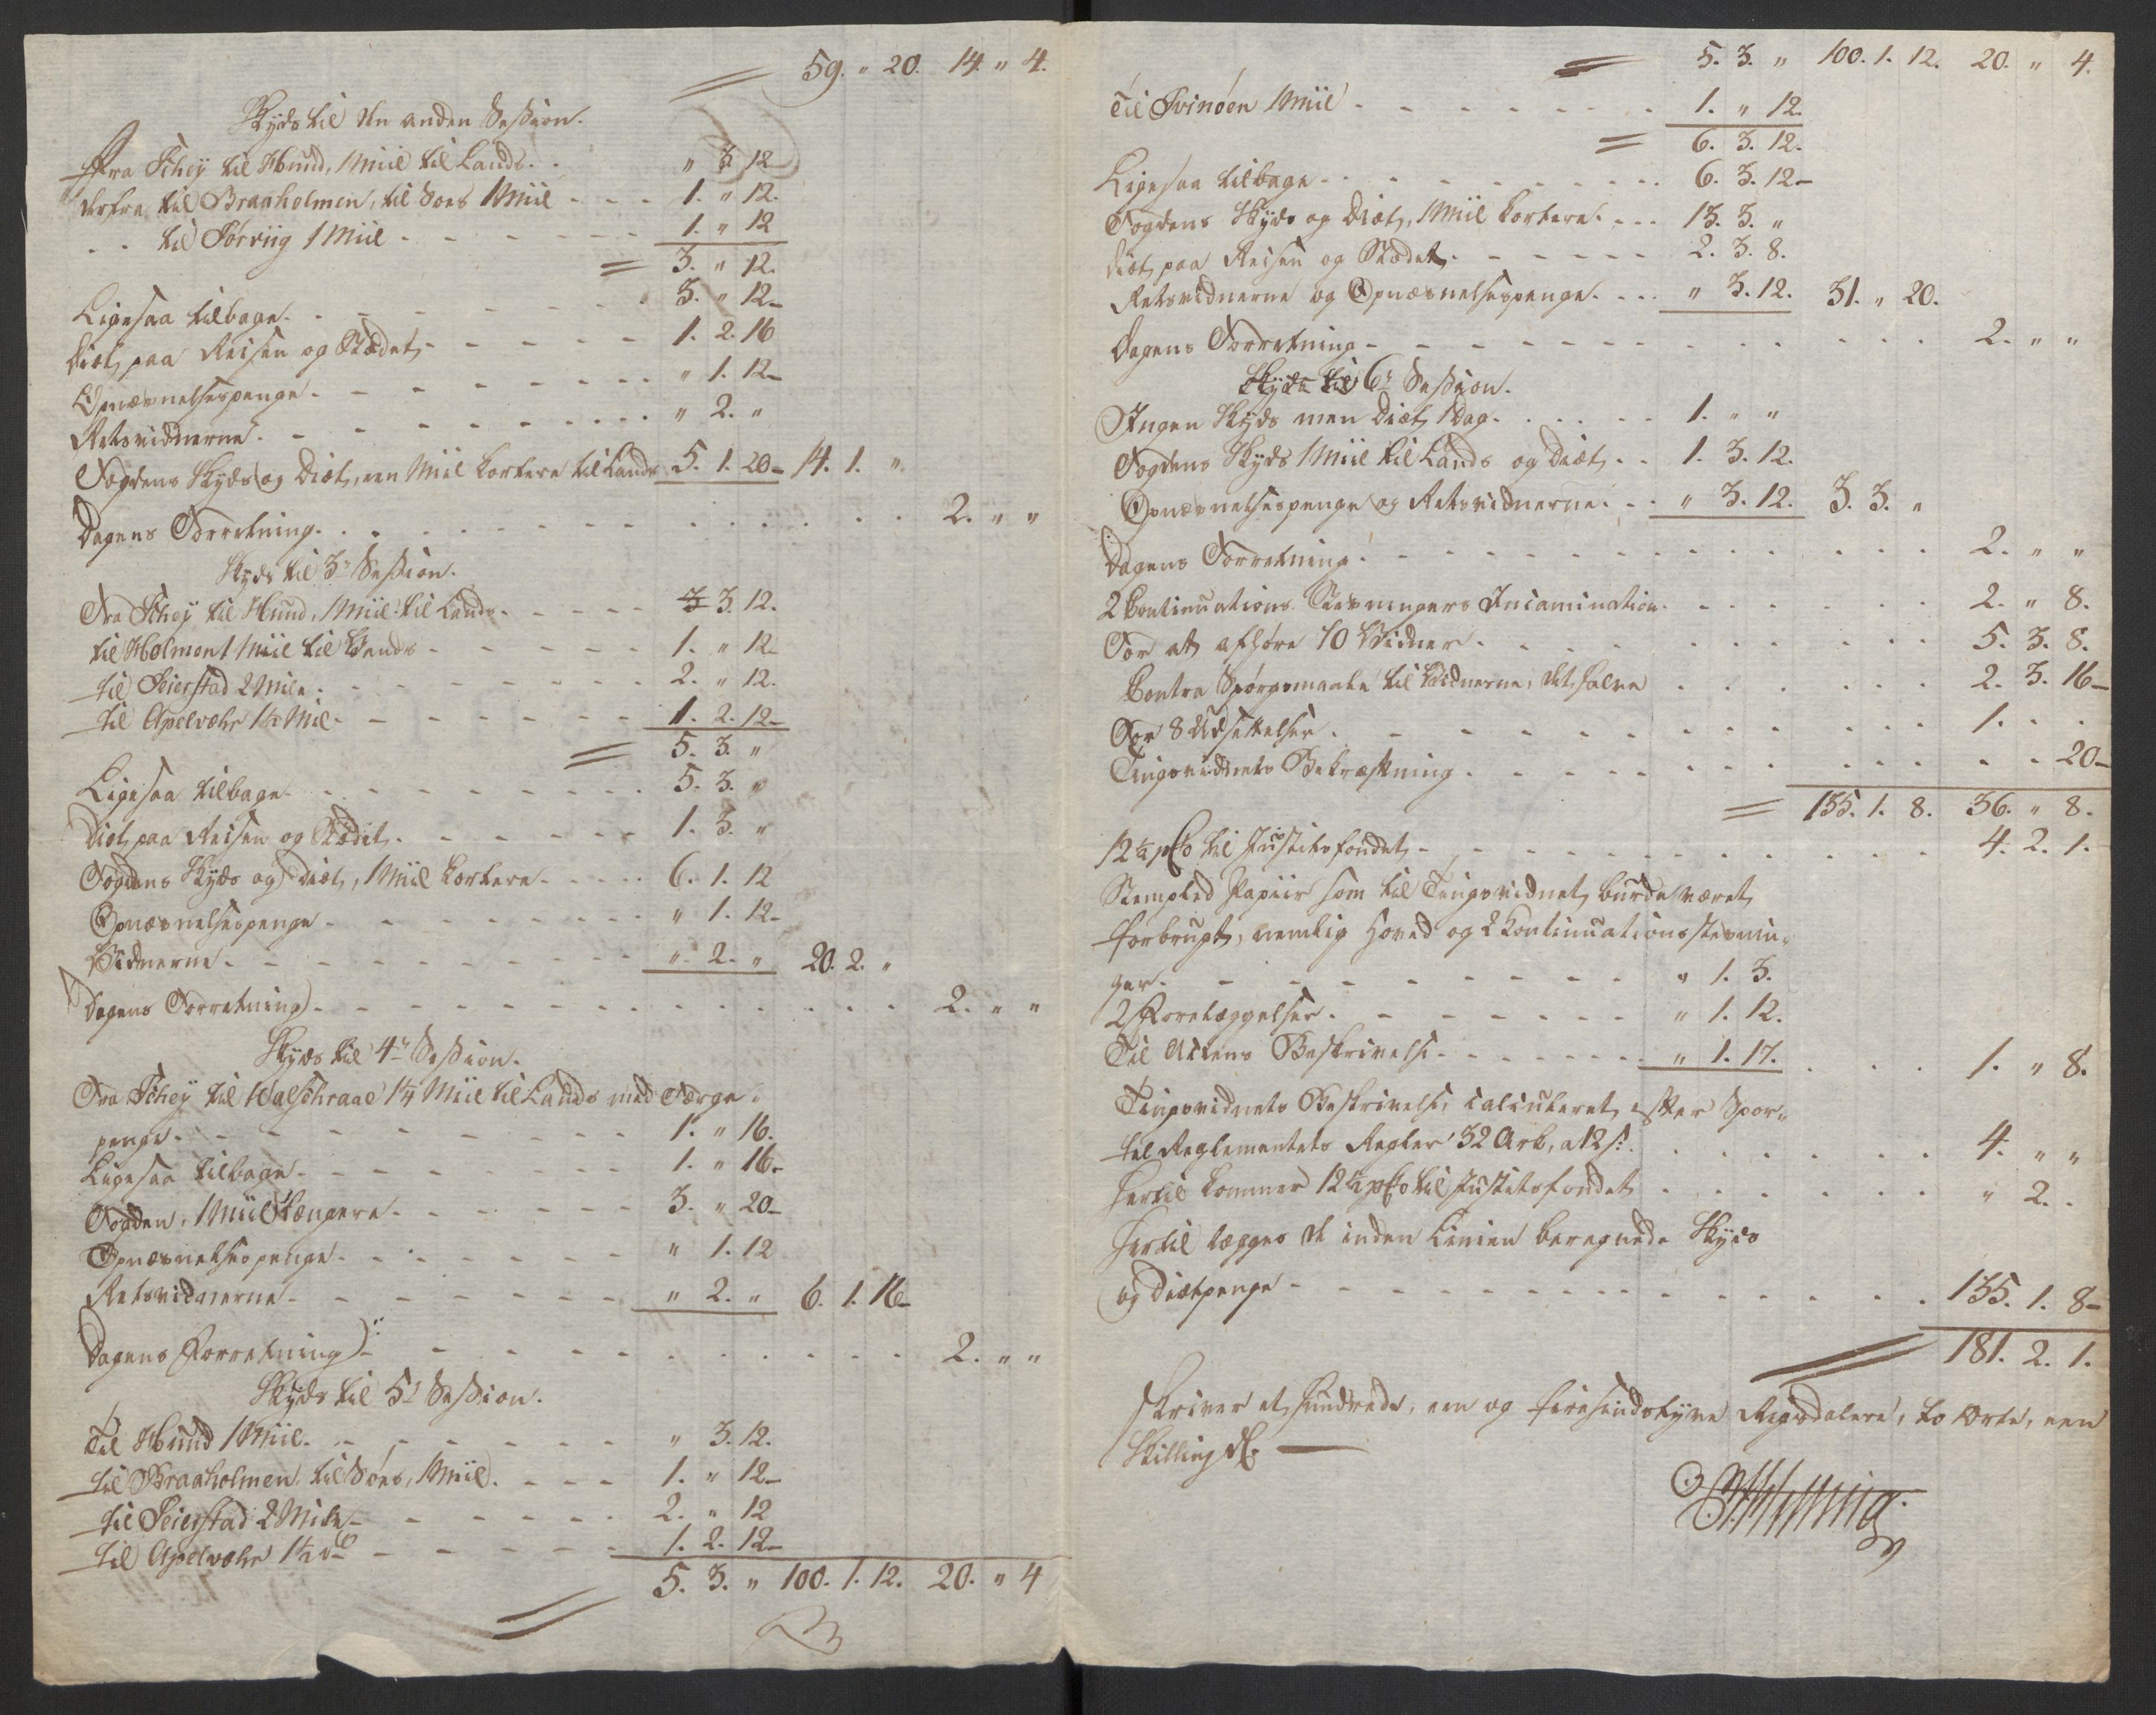 59. " 20. 14. " 4.
Skyds til den anden Session.
Fra Schey til Hund, 1 Miil til Lands. . " 3. 12
derfra til Braaholmen, til Søes 1 Miil - - - 1. " 12.
- - til Førviig 1 Miil - - - - - - 1. " 12
= 3. " 12.
Ligesaa tilbage. - - - - - - 3. " 12
Diæt paa Reisen og Stædet - - - - - 1. 2. 16
Opnævnelsespenge. - - - - - - - " 1. 12
Retsvidnerne. - - - - - - - " 2. "
Fogdens Skyds og Diæt, een Miil kortere til Lands 5. 1. 20 14. 1. "
Dagens Forretning. - - - - - - - 2. " "
Skyds til 3de Session.
Fra Schey til Hund, 1 Miil til Lands. - - - - 3. 12.
til Holmen 1 Miil til Vands - - - - - 1. " 12
til Feierstad 2 Mile. - - - - - - 2. " 12.
til Apelvær 1½ Mil. - - - - - - 1. 2. 12
= 5. 3. "
Ligesaa tilbage - - - - - - - 5. 3. "
Diæt paa Reisen og Stædet. - - - - - 1. 3. "
Fogdens Skyds og Diæt, 1 Miil kortere. - - - 6. 1. 12
Opnævnelsespenge - - - - - - - " 1. 12
Vidnerne - - - - - - - - - " 2. " 20. 2. "
Dagens Forretning. - - - - - - - - 2. " "
Skyds til 4de Session.
Fra Schey til 1¼ Miil til Lands med Færge-
penge. - - - - - - - - 1. " 16.
Ligesaa tilbage. - - - - - - - 1. " 16
Fogden, 1 Miil længere. - - - - - 3. " 20
Opnævnelsespenge. - - - - - - " 1. 12
Retsvidnerne - - - - - - - " 2. " 6. 1. 16
Dagens Forretning - - - - - - - - 2. " "
Skyds til 5te Session.
Til Hund 1 Miil. - - - - - - - " 3. 12.
til Braaholmen, til Søes, 1 Miil. - - - - 1. " 12
til Feierstad 2 Mile - - - - - - 2. " 12
til Apelvær 1½ do - - - - - 1. 2. 12
5. 3. " 100. 1. 12. 20. " 4
= 5. 3. " 100. 1. 12. 20. " 4.
Til Svinøen 1 Miil - - - - - - 1. " 12.
= 6. 3. 12.
Ligesaa tilbage - - - - - - - - 6. 3. 12
Fogdens Skyds og Diæt, 1 Miil kortere. - - - 13. 3. "
Diæt paa Reisen og Stædet - - - - - 2. 3. 8.
Retsvidnerne og Opnævnelsespenge. - - - " 3. 12. 31. " 20.
Dagens Forretning - - - - - - - - - 2. " "
Skyds til 6te Session.
Ingen Skyds men Diæt 1 Dag. - - - - 1. " "
Fogdens Skyds 1 Miil til Lands og Diæt - - 1. 3. 12.
Opnævnelsespenge og Retsvidnerne. - - " 3. 12. 3. 3. "
Dagens Forretning. - - - - - - - - - 2. " "
2 Continuations Stevningers Incamination. - - - - - 2. " 8.
For at afhøre 10 Vidner - - - - - - - - 5. 3. 8.
Contra Spørgsmaale til Vidnerne, det halve - - - - - 2. 3. 16
For 8 Udsættelser. - - - - - - - - 1. - -
Tingsvidnets Bekræftning. - - - - - - - - - 20
= 135. 1. 8. 36. " 8.
12½ pCto til Justitsfondet - - - - - - - - 4. 2. 1.
Stempled Papiir som til Tingsvidnet burde været
forbrugt, nemlig Hoved og 2 Continuationsstevnin-
ger. - - - - - - - - " 1. 3.
2 Forelæggelser. - - - - - - - " 1. 12.
Til Actens Beskrivelse - - - - - - " 1. 17. - - - 1. " 8.
Tingsvidnets Beskrivelse, calculeret efter Spor-
tel Reglementets Regler 32 Ark, a 12 s. - - - - - 4. " "
Hertil kommer 12½ pCto til Justitsfondet - - - - - " 2. -
Hertil lægges de inden Linien beregnede Skyds
og Diætpenge - - - - - - - - - - - 135. 1. 8
181. 2. 1.
Skriver et hundrede, een og firesindstyve Rigsdalere, to Orter, een
Skilling d.C.